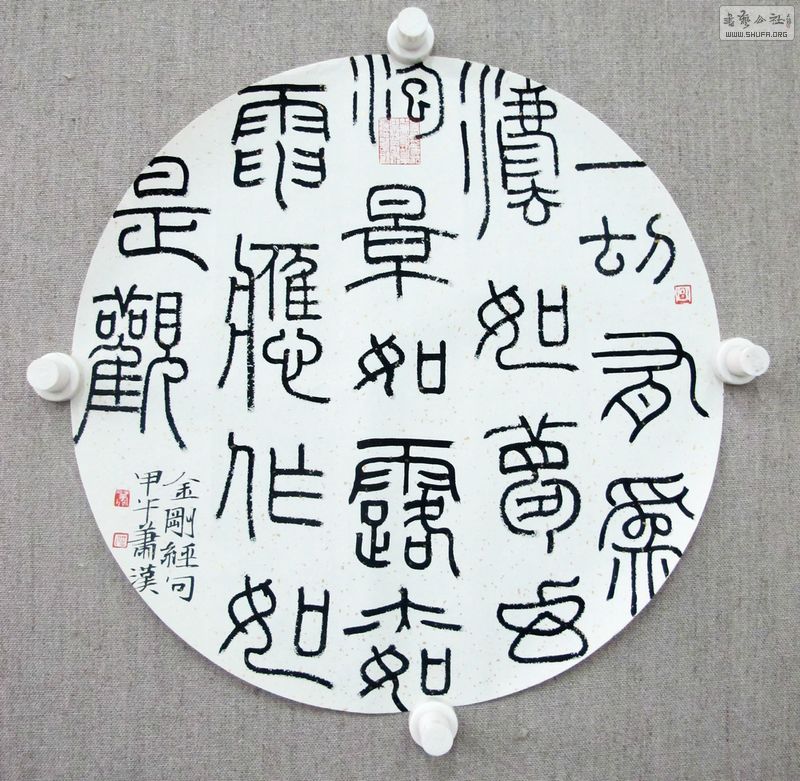 一切有為
灋如夢幻
泡景如露亦如
電應作如
是觀
金剛經句
甲午蕭漢
書藝公社
WWW.SHUFA.ORG